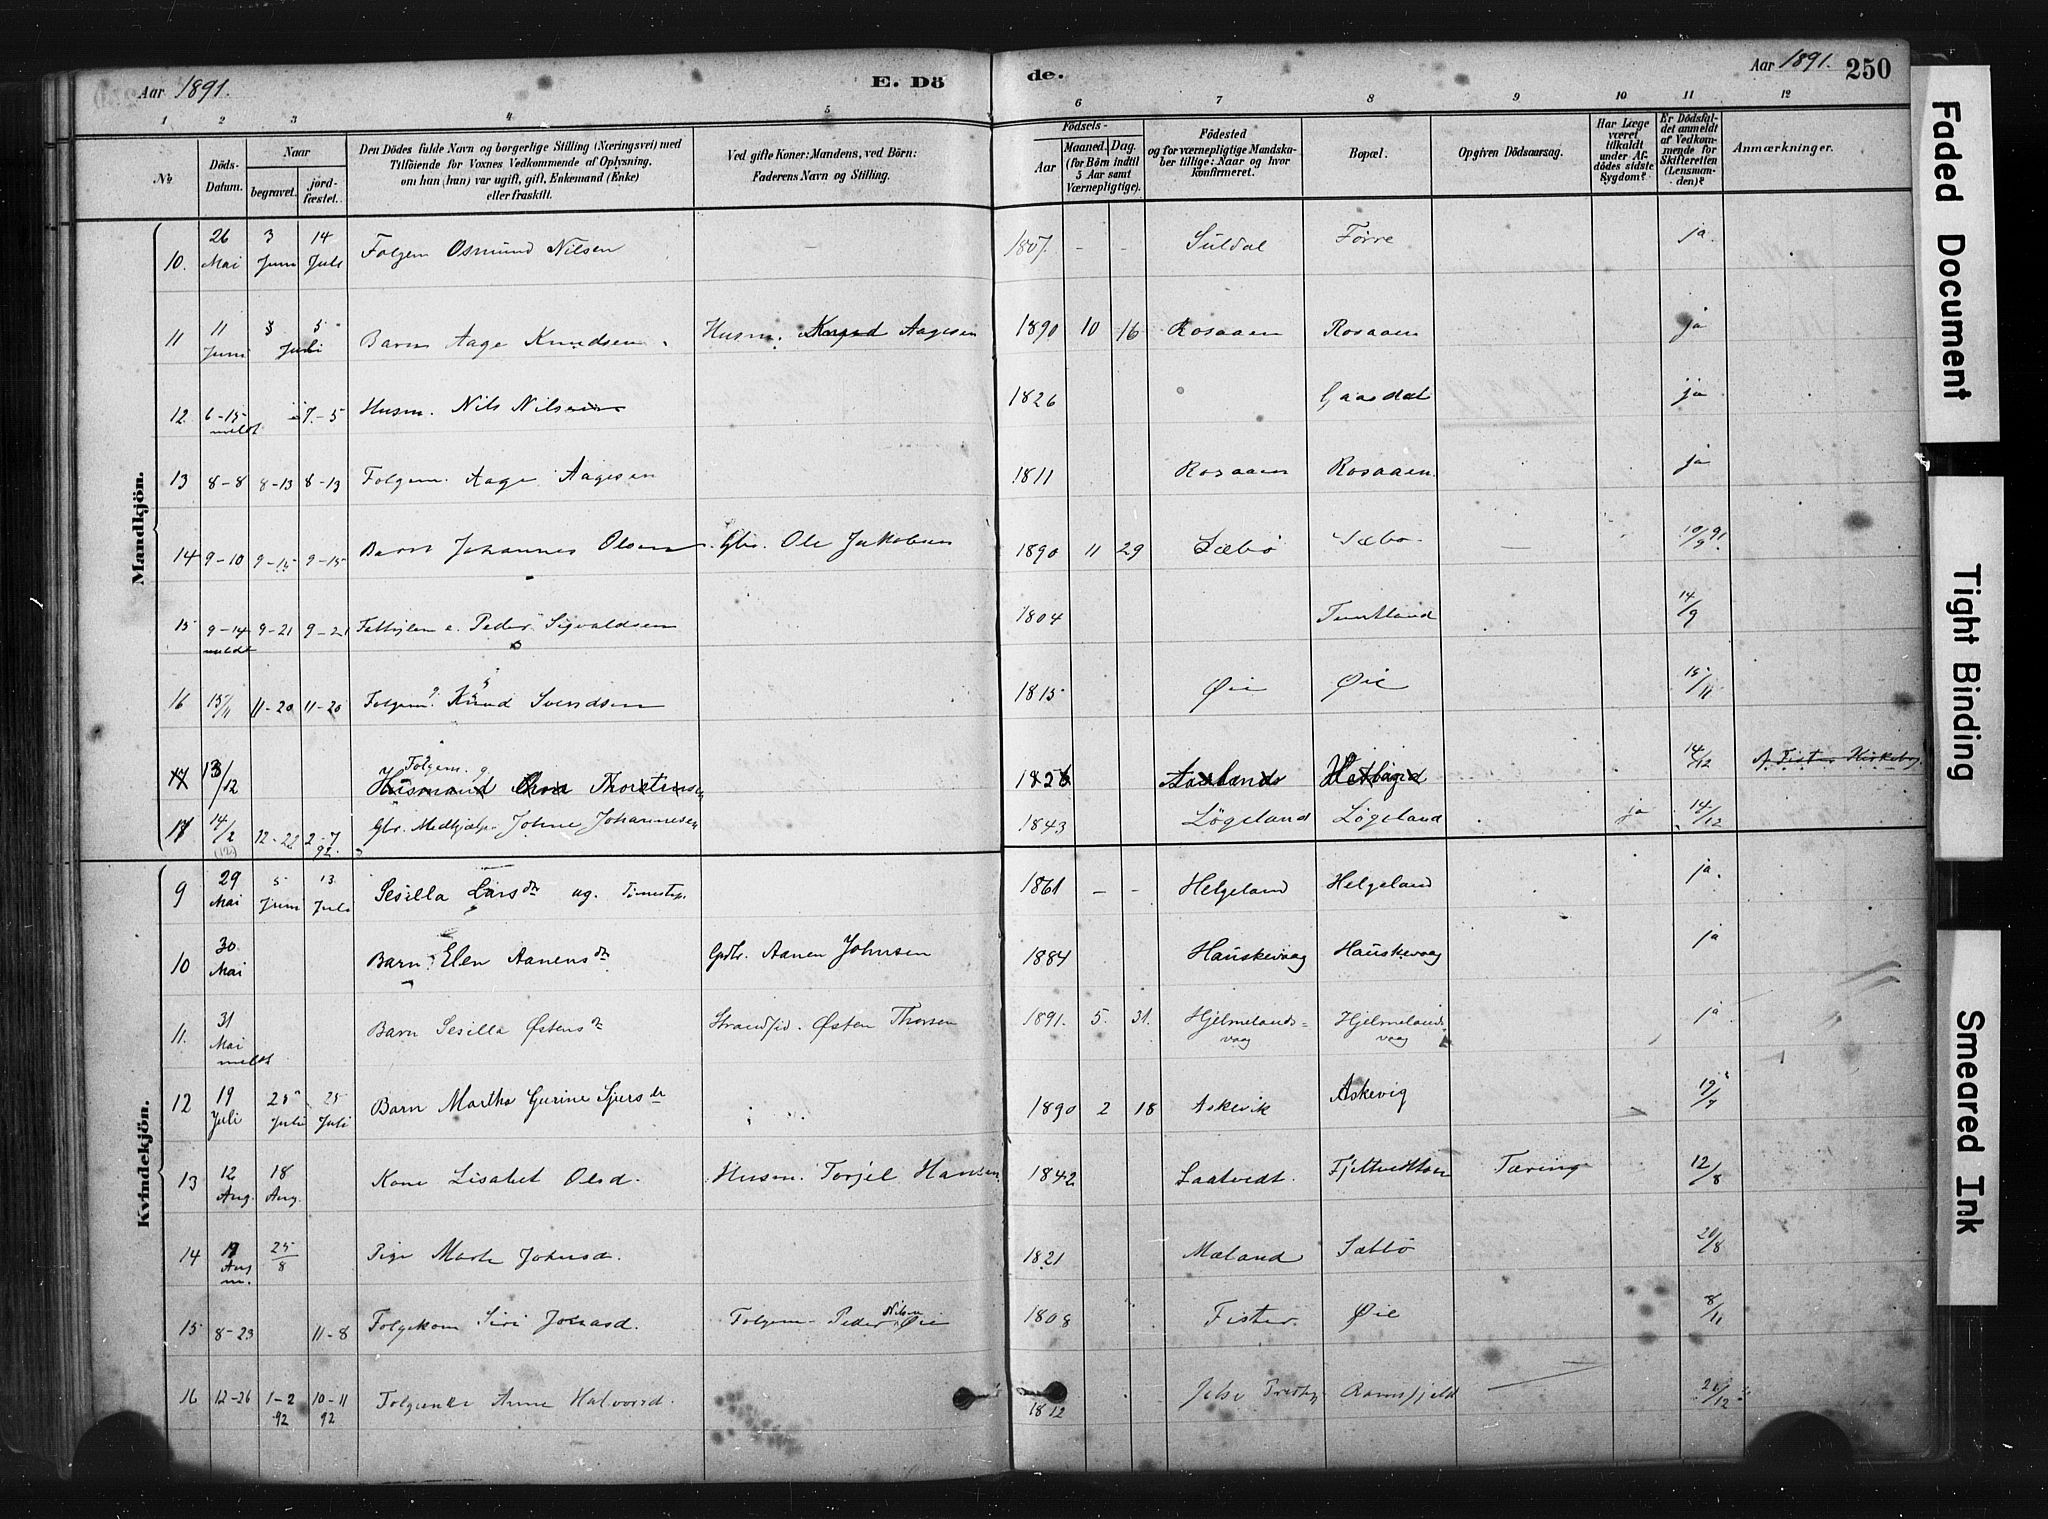 Aar 1891.
E. Dö
de.
Aar 1891. 250
1 2 3 4 5 6 7 8 9 10 11 12
№
Döds-
Datum.
Naar
begravet. jord-
fæstet.
Den Dödes fulde Navn og borgerlige Stilling (Næringsvei) med
Tilföiende for Voxnes Vedkommende af Oplysning,
om han (hun) var ugift, gift, Enkemand (Enke)
eller fraskilt.
Ved gifte Koner: Mandens, ved Börn:
Faderens Navn og Stilling.
Födsels-
Aar
Maaned. Dag.
(for Börn indtil
5 Aar samt
Værnepligtige).
Födested
og for værnepligtige Mandska-
ber tillige: Naar og hvor
Konfirmeret.
Bopæl.
Opgiven Dödsaarsag.
Har Læge
været
tilkaldt
under Af-
dödes sidste
Sygdom?
Er Dödsfal-
det anmeldt
af Vedkom-
mende for
Skifteretten
(Lensman-
den)?
Anmærkninger.
Mandkjön.
10. 26 Mai 3 Juni 14 Juli Folgem Osmund Nilsen - 1807. - - Suldal Førre ja.
11 11 Juni 3 5 Juli Barn Aage Knudsen. Husm. Knud Aagesen 1890 10 16 Rosaaen Rosaaen ja
12. 6-15 meldt 7-5 Husm. Nils Nilsen 1826 Gaasdal ja
13 8-8 8-13 8-13 Folgem. Aage Aagesen 1811 Rosaaen Rosaaen. ja
14 9-10 9-15 9-15 Barn Johannes Olsen Gbr. Ole Jakobsen 1890 11 29 Sæbø Sæbø - 10/9 91.
15 9-14 meldt 9-21 9-21 Peder Sigvaldsen 1804 Tuntland 14/9
16 15/11 11-20 11-20 Folgem. Knud Svendsen 1815 Øie Øie 15/11
17 13/12 Folgem. Husmand Thorstensen 1826 Aaslands 14/12 Af Fister Kirkebog
17 14/2 (12) 12-22 2-7 92. Gbr. Medhjælp. Johne Johannesen 1843 Løgeland Løgeland ja 14/12
Kvindekjön.
9 29 Mai 5 Juni 13 Juli Sesilla Larsdtr ug. 1861 - - Helgeland Helgeland ja.
10 30 Mai Barn Elen Aanensdtr Grdbr. Aanen Johnsen 1884 Hauskevaag Hauskevaag ja
11. 31 Mai meldt Barn Sesilla Østensdtr Strandsid. Østen Thorsen 1891. 5. 31. Hjelmelands=
vaag Hjelmelands-
vaag ja
12 19 Juli 25 Juli 25 Juli Barn Martha Gurine Sjursdtr 1890 2 18 Askevik Askevig 19/7
13 12 Aug. 18 Aug. Kone Lisabet Olsd. Husm. Torjel Hansen 1842 Laatvedt. Tæring 12/8
14 19 Aug m. 25/8 Pige Marte Johnsd. 1821 Mæland Sætbø 20/8
15 8-23 11-8 Folgekone Siri Jonasd. Folgem. Peder Nilsen Øie 1808 Fister. Øie 8/11
16 12-26 1-2 92 10-11 92 Folgeenke Anne Halvorsd. 1812 Jelse Præstegj Ramsfjeld
Faded Document
Tight Binding
Smeared Ink